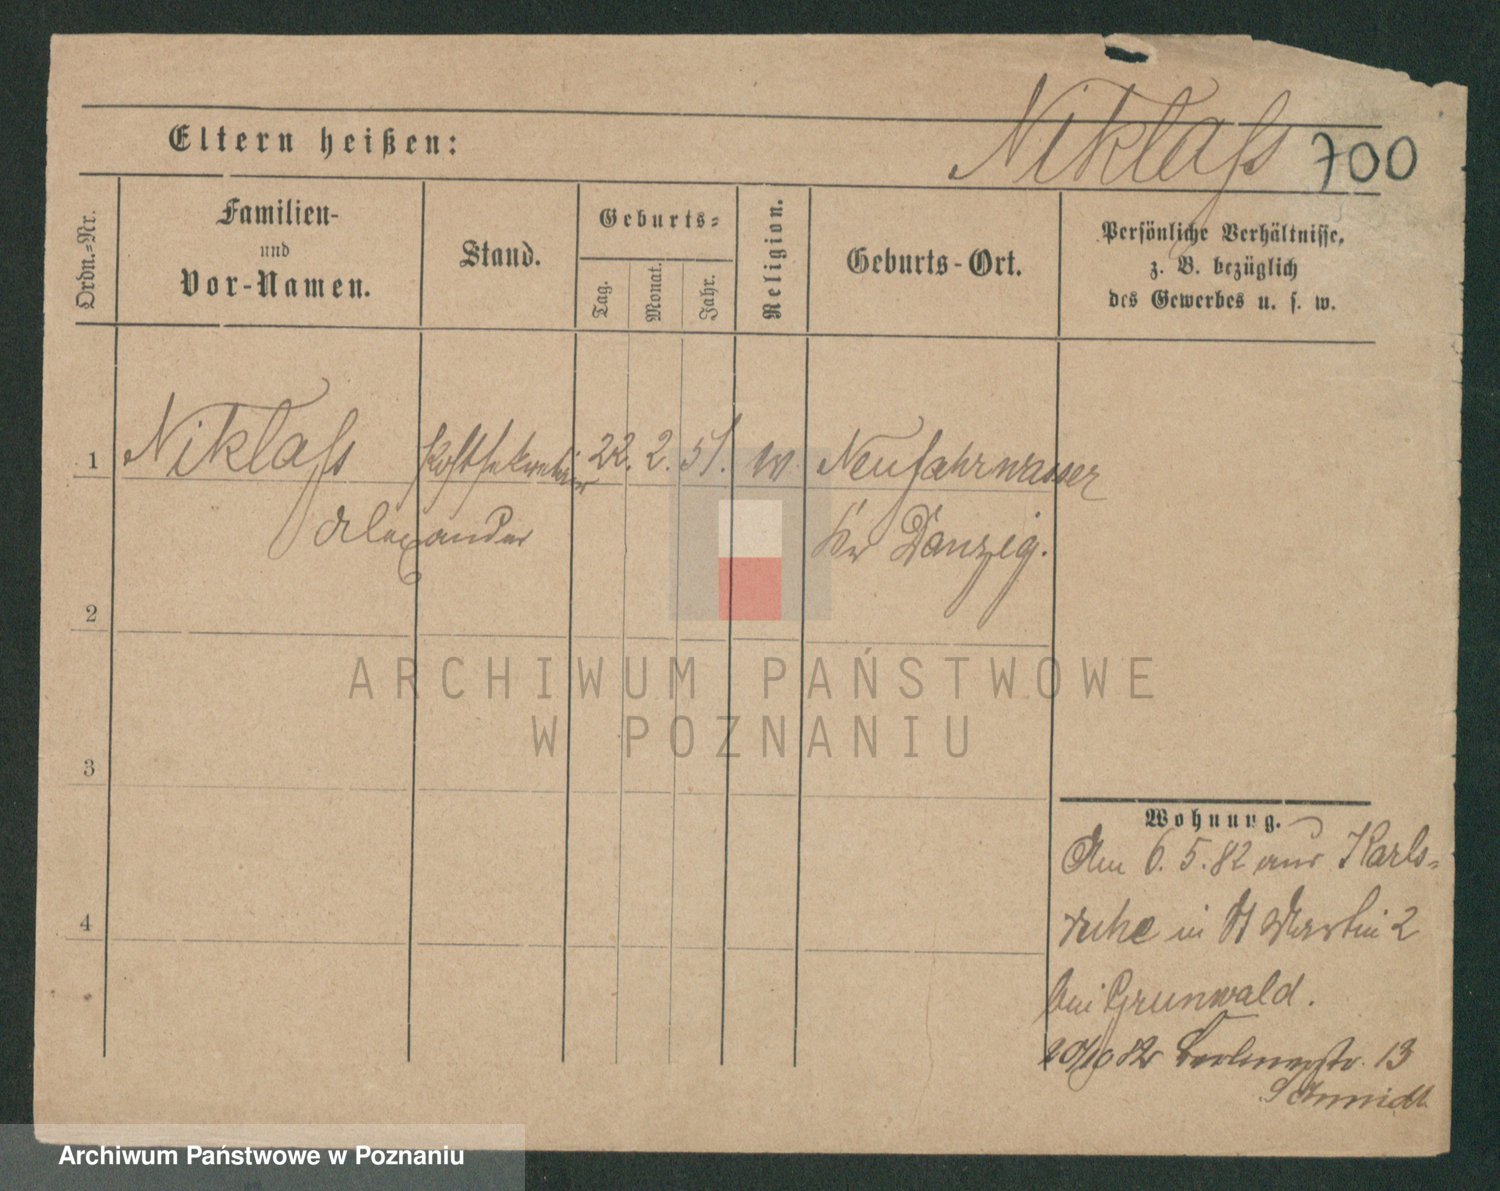 Niklaß 700
Eltern heißen:
Ordn.-Nr.
Familien-
und
Vor-Namen.
Stand.
Geburts-
Tag.
Monat.
Jahr.
Religion.
Geburts-Ort.
Persönliche Verhältnisse,
z. B. bezüglich
des Gewerbes u. s. w.
1 Niklaß Postsekretär 22. 2. 51. Neufahrwasser
Alexander Kr Danzig.
2
3
4
Wohnung.
Am 6. 5. 82 aus Karls-
ruhe in St Martin 2
bei Grunwald.
20/10 82 Berlinerstr. 13
Schmidt
ARCHIWUM PAŃSTWOWE
W POZNANIU
Archiwum Państwowe w Poznaniu